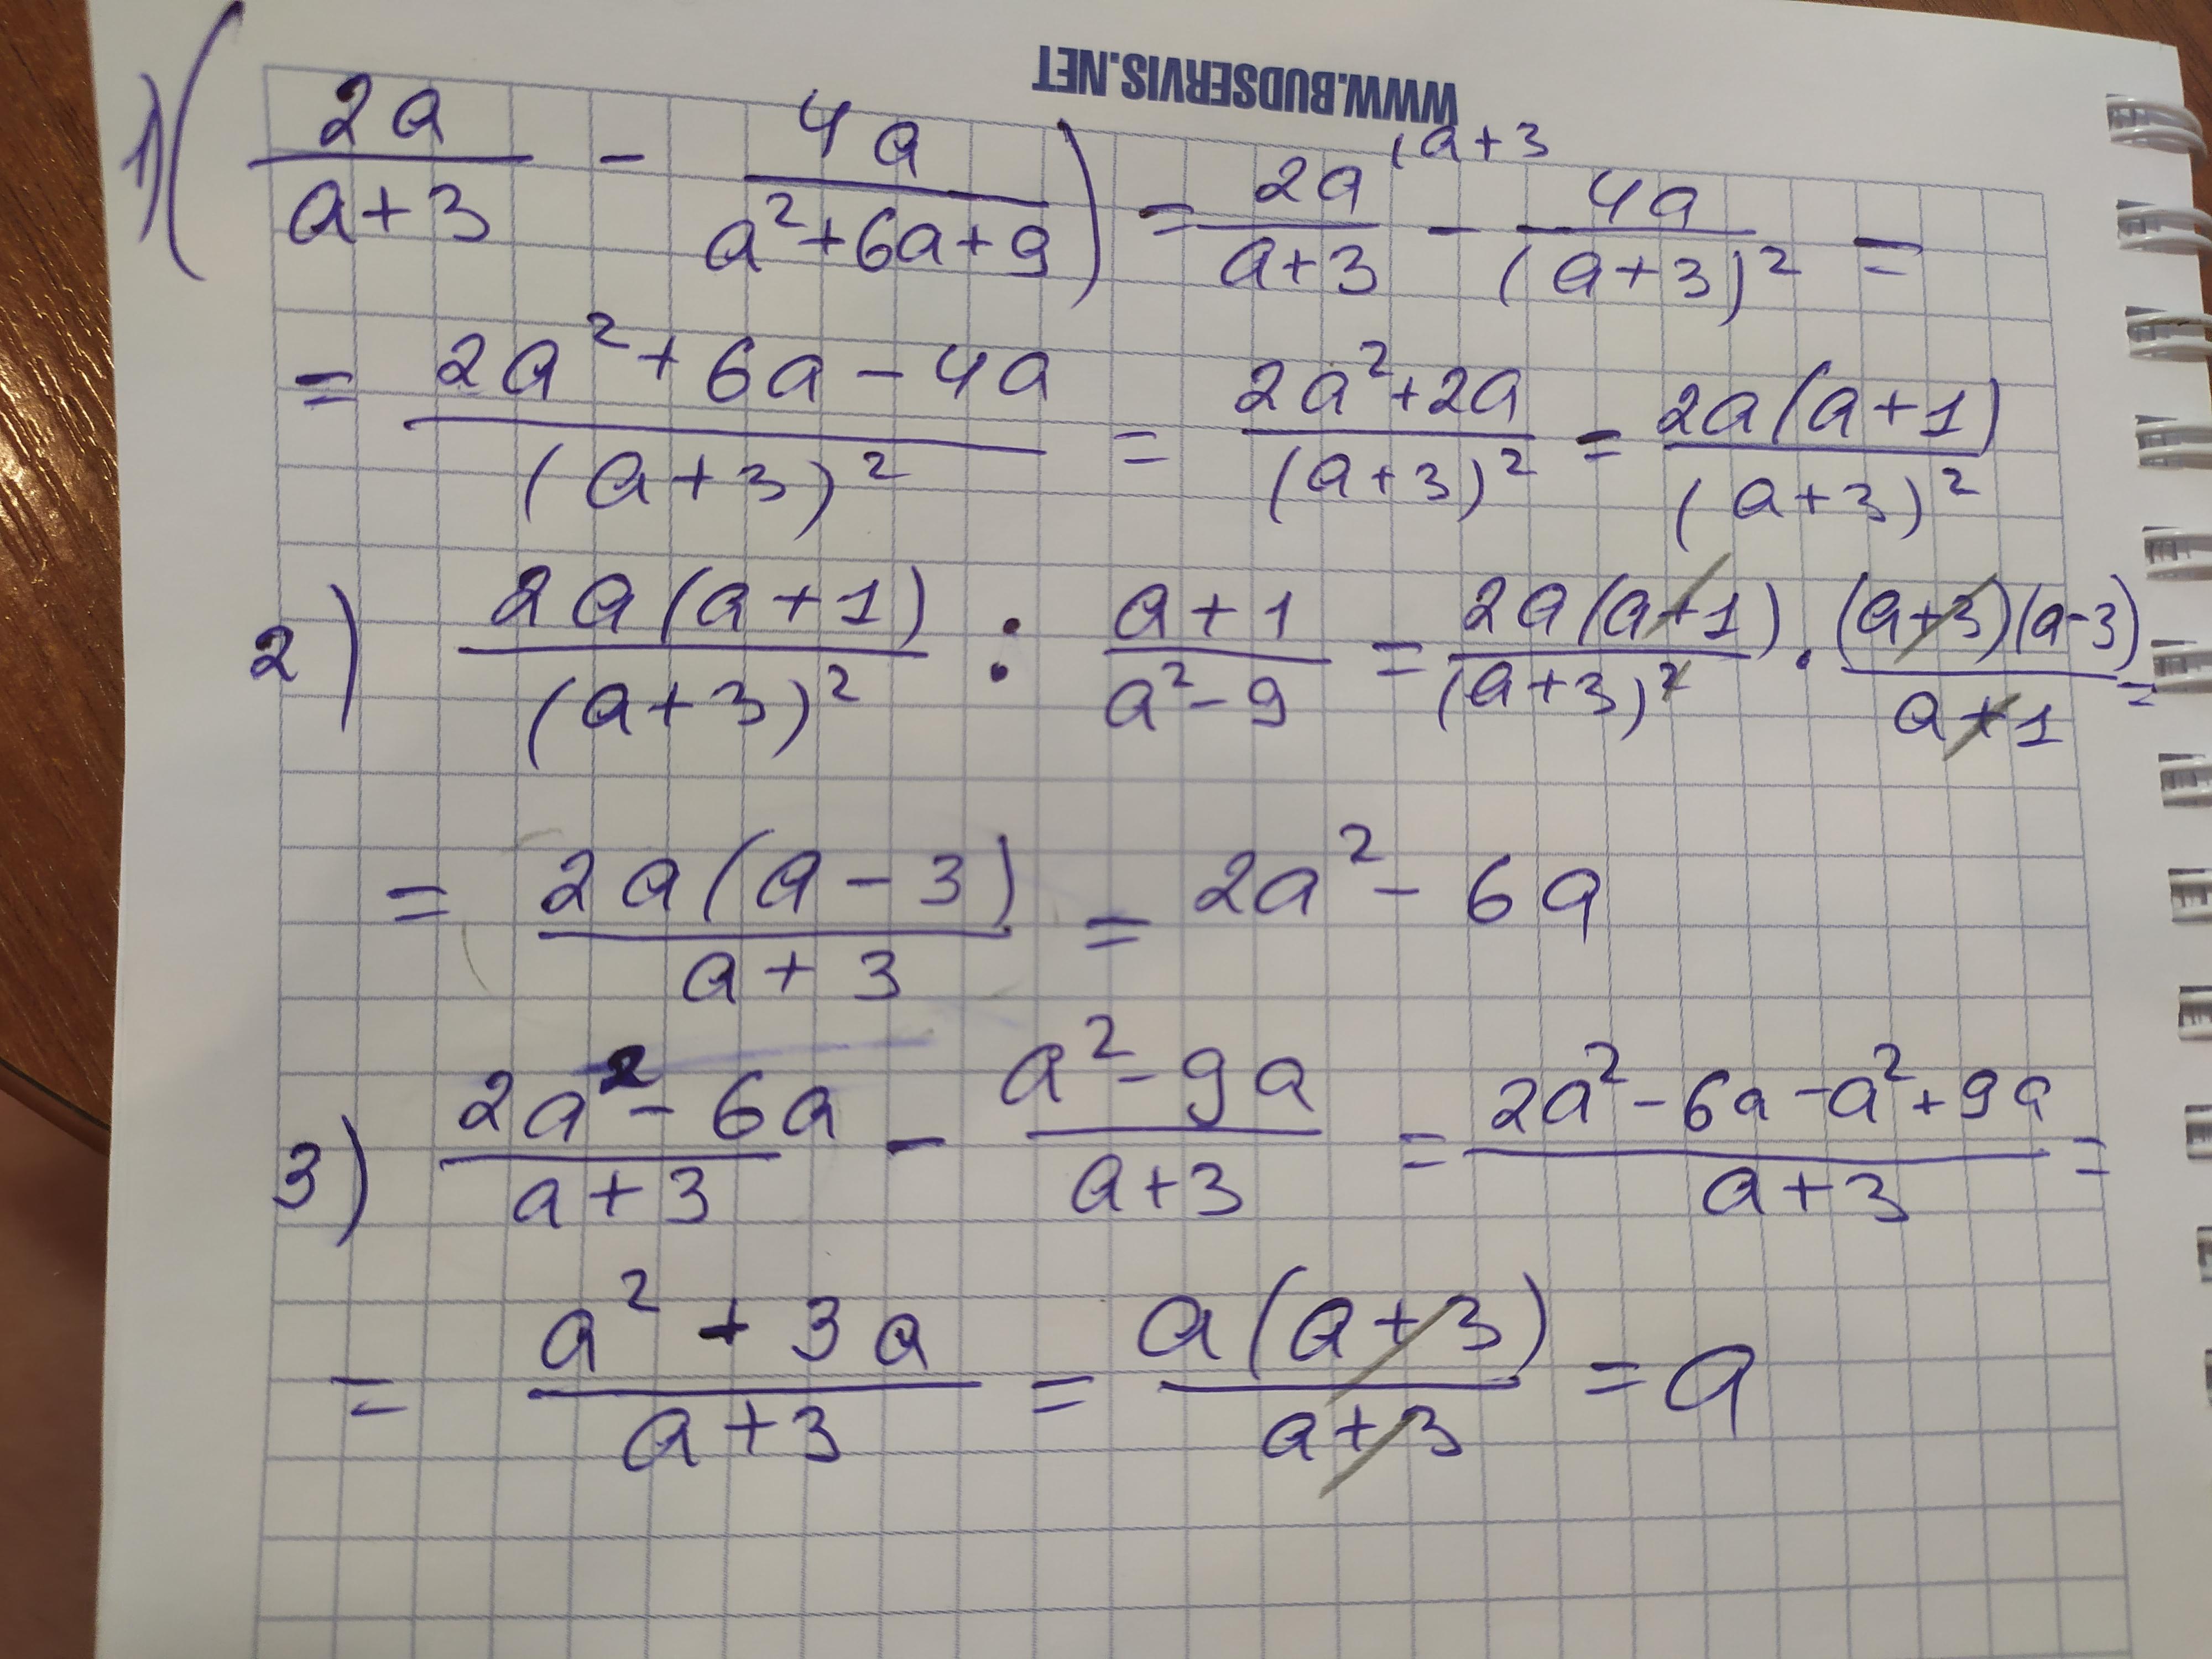 WWW.BUDSERVIS.NET
1) ( 2a/(a+3) - 4a/(a²+6a+9) ) = 2a/(a+3) (a+3 - 4a/(a+3)² =
= (2a²+6a-4a)/(a+3)² = (2a²+2a)/(a+3)² = 2a(a+1)/(a+3)²
2) 2a(a+1)/(a+3)² : (a+1)/(a²-9) = 2a(a+1)/(a+3)² · (a+3)(a-3)/(a+1) =
= 2a(a-3)/(a+3) = 2a²-6a
3) (2a²-6a)/(a+3) - (a²-9a)/(a+3) = (2a²-6a-a²+9a)/(a+3) =
= (a²+3a)/(a+3) = a(a+3)/(a+3) = a